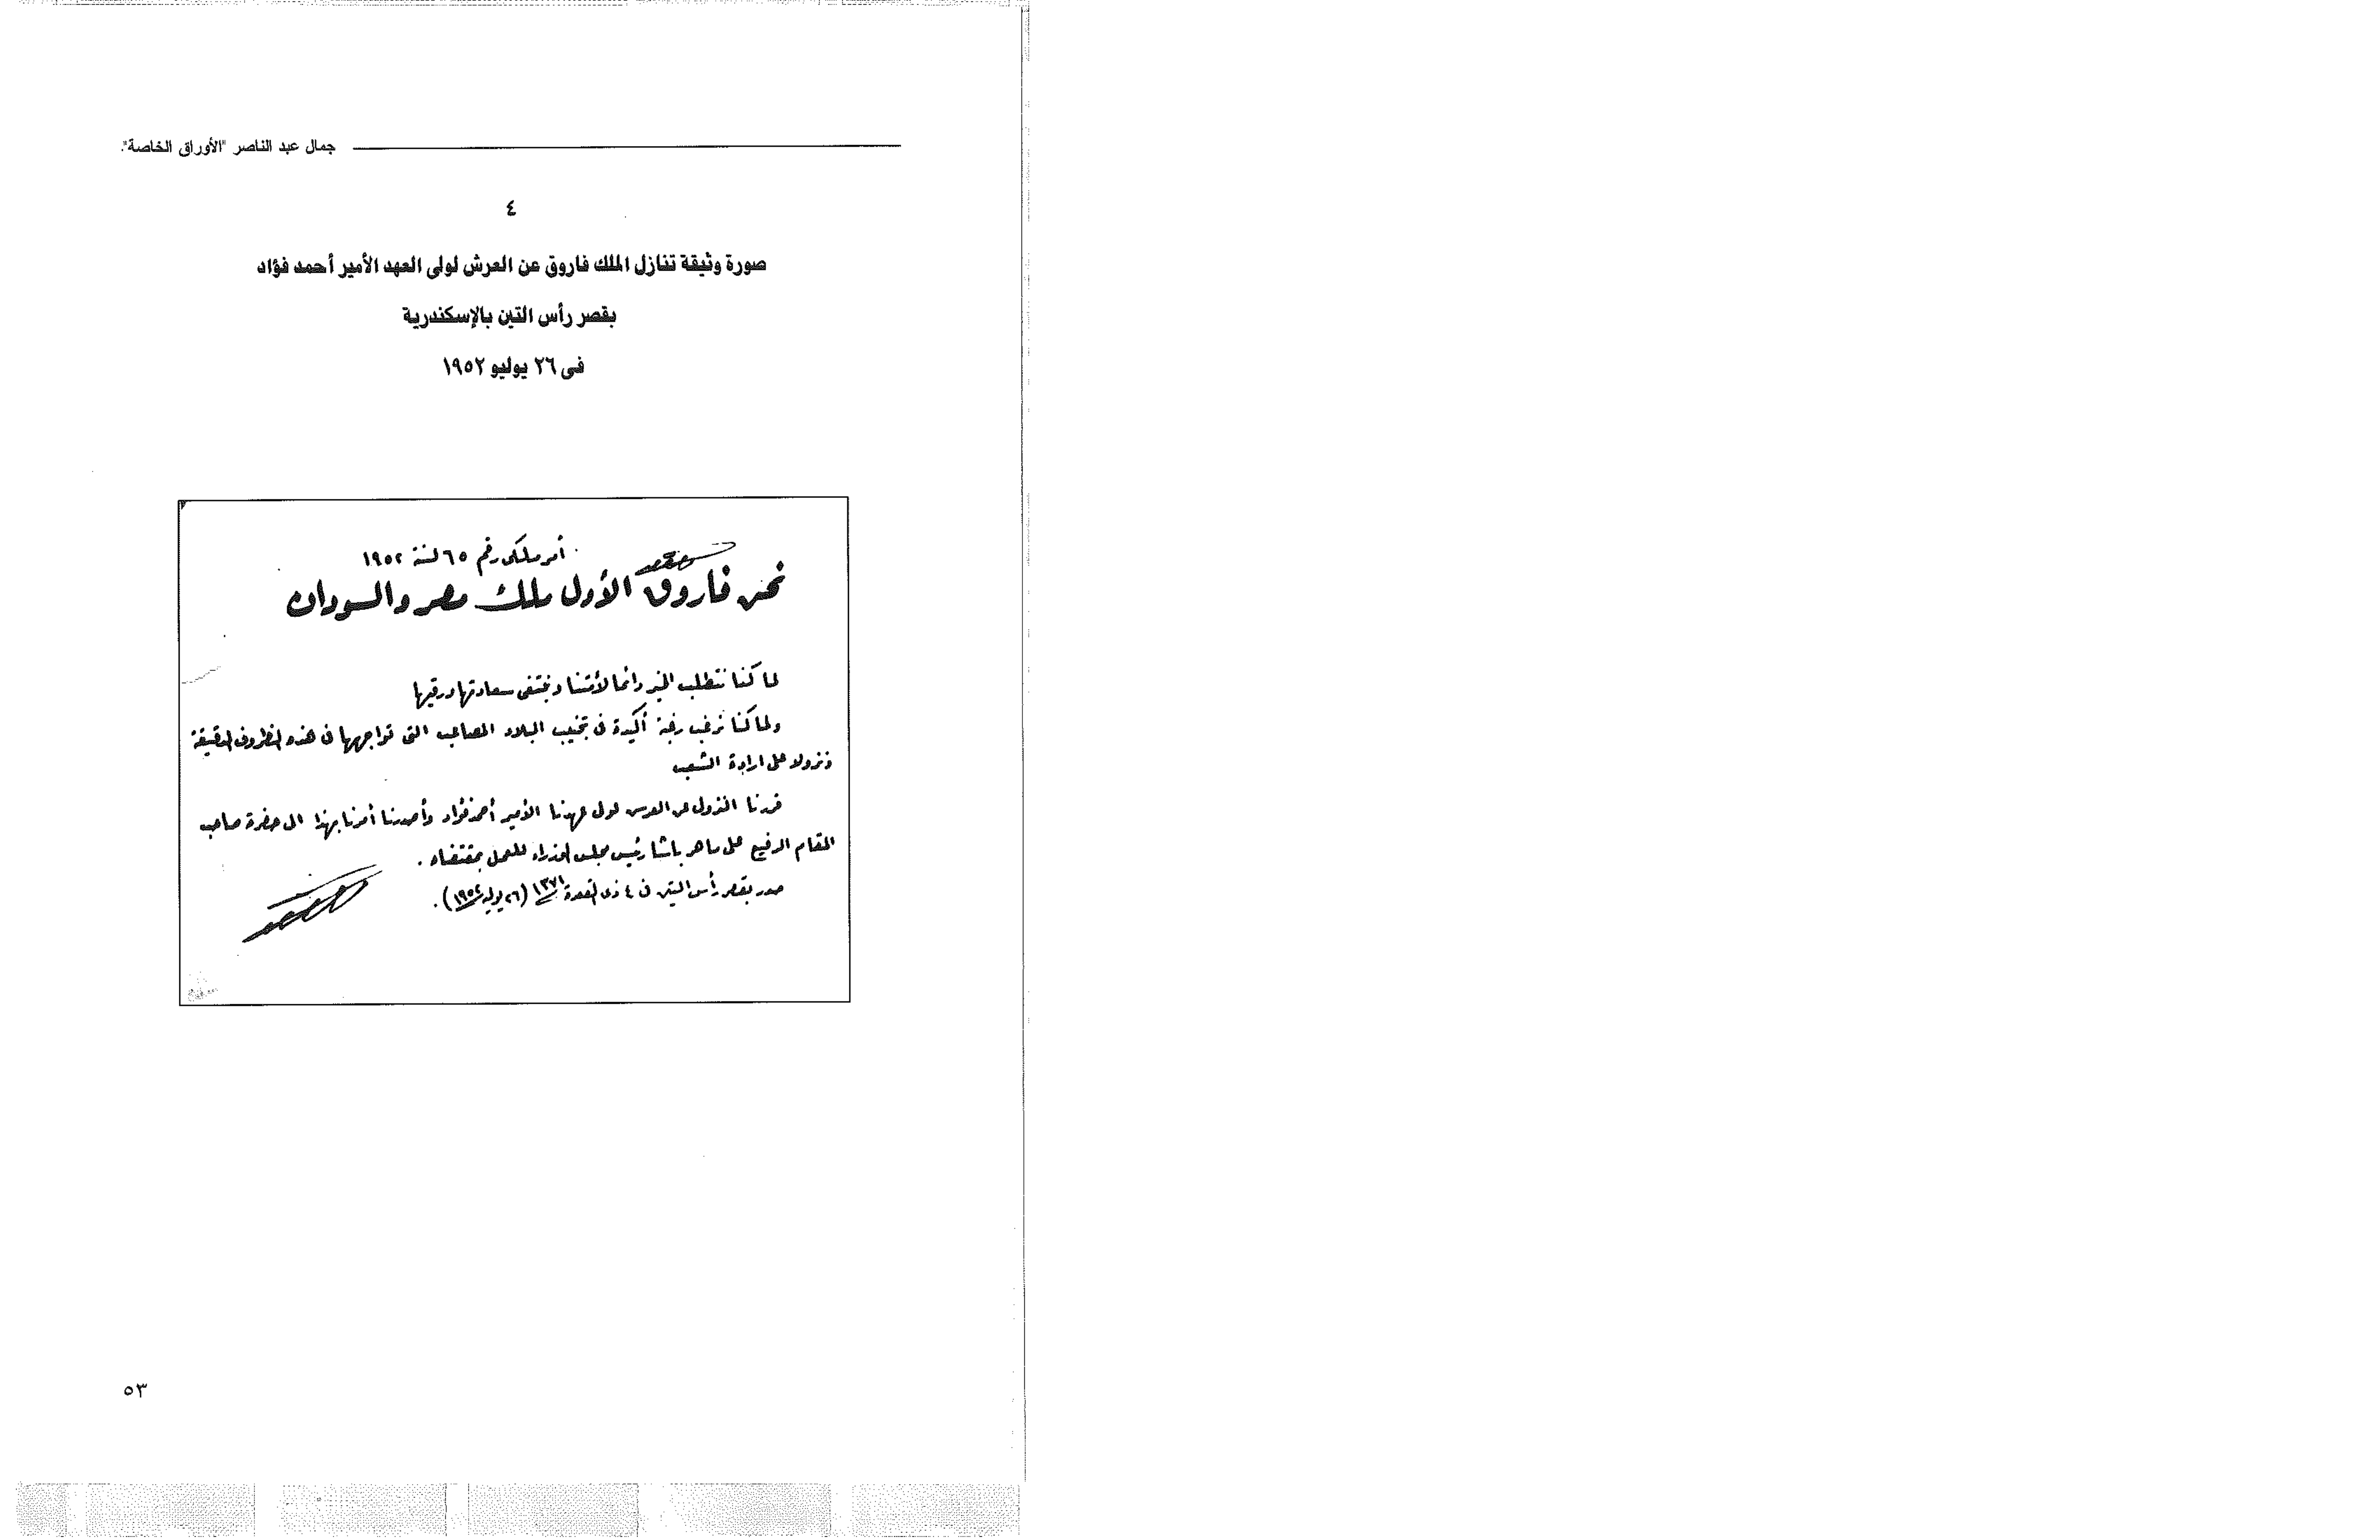 جمال عبد الناصر "الأوراق الخاصة".
٤
صورة وثيقة تنازل الملك فاروق عن العرش لولى العهد الأمير أحمد فؤاد
بقصر رأس التين بالإسكندرية
فى ٢٦ يوليو ١٩٥٢
أمر ملكى رقم ٦٥ لسنة ١٩٥٢
نحن فاروق الأول ملك مصر والسودان
لما كنا نتطلب الخير دائما لأمتنا ونبتغى سعادتها ورقيها
ولما كنا نرغب رغبة أكيدة فى تجنيب البلاد المصاعب التى تواجهها فى هذه الظروف الدقيقة
ونزولا على ارادة الشعب
قررنا النزول عن العرش لولى عهدنا الأمير أحمد فؤاد وأصدرنا أمرنا بهذا الى حضرة صاحب
المقام الرفيع على ماهر باشا رئيس مجلس الوزراء للعمل بمقتضاه .
صدر بقصر رأس التين فى ٤ ذى القعدة ١٣٧١ (٢٦ يوليه ١٩٥٢).
٥٣